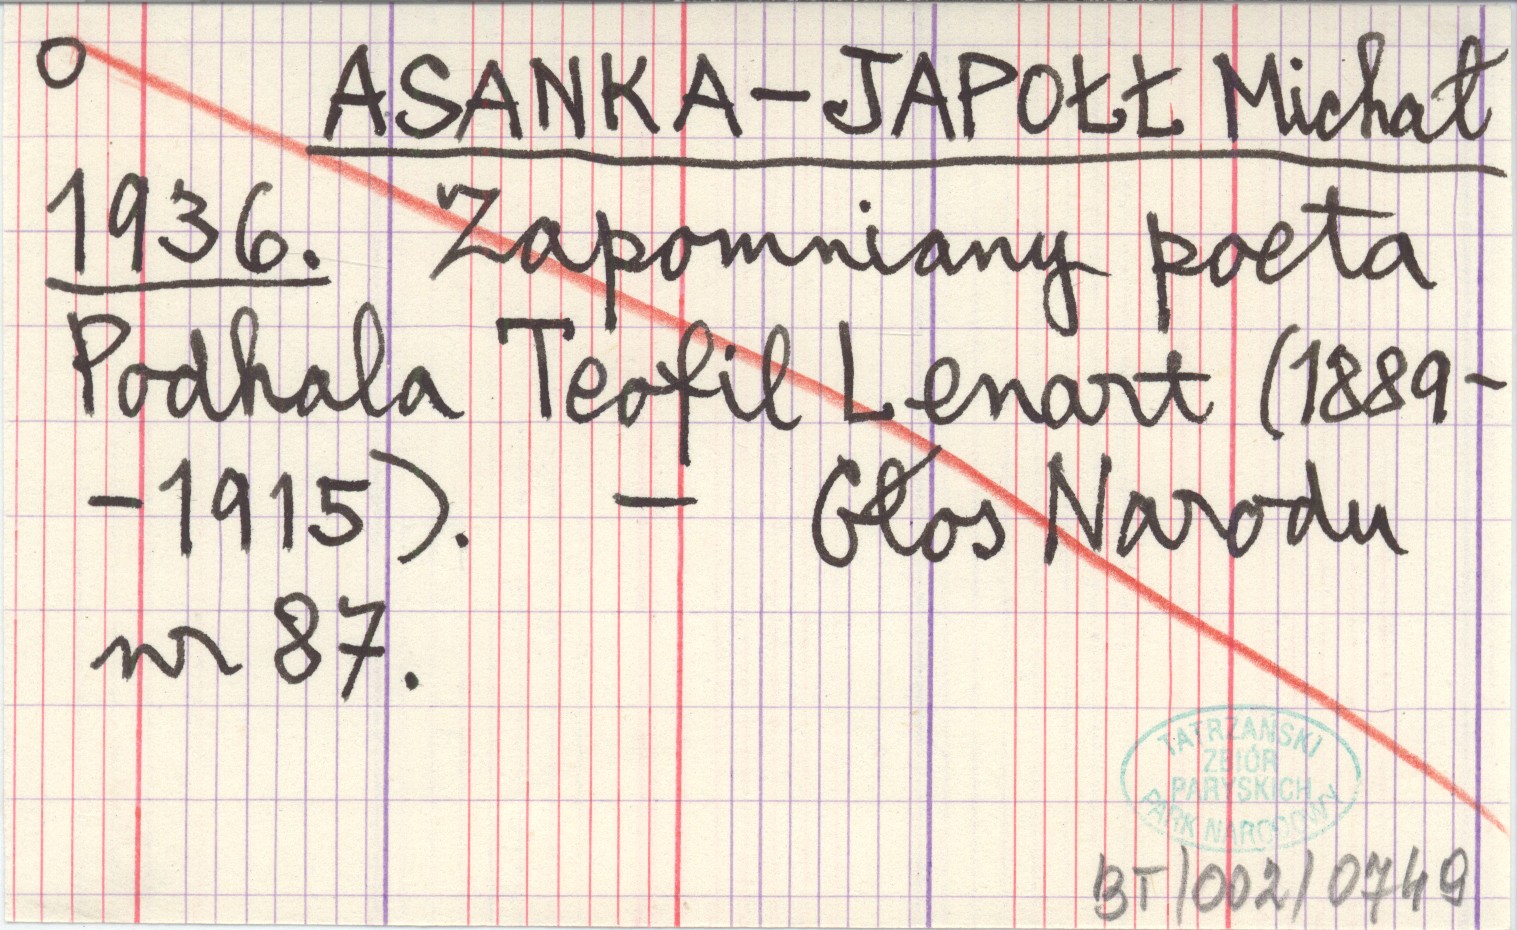 O ASANKA-JAPOŁŁ Michał
1936. Zapomniany poeta
Podhala Teofil Lenart (1889-
-1915). — Głos Narodu
nr 87.
TATRZAŃSKI
ZBIÓR
PARYSKICH
PARK NARODOWY
BT/002/0749